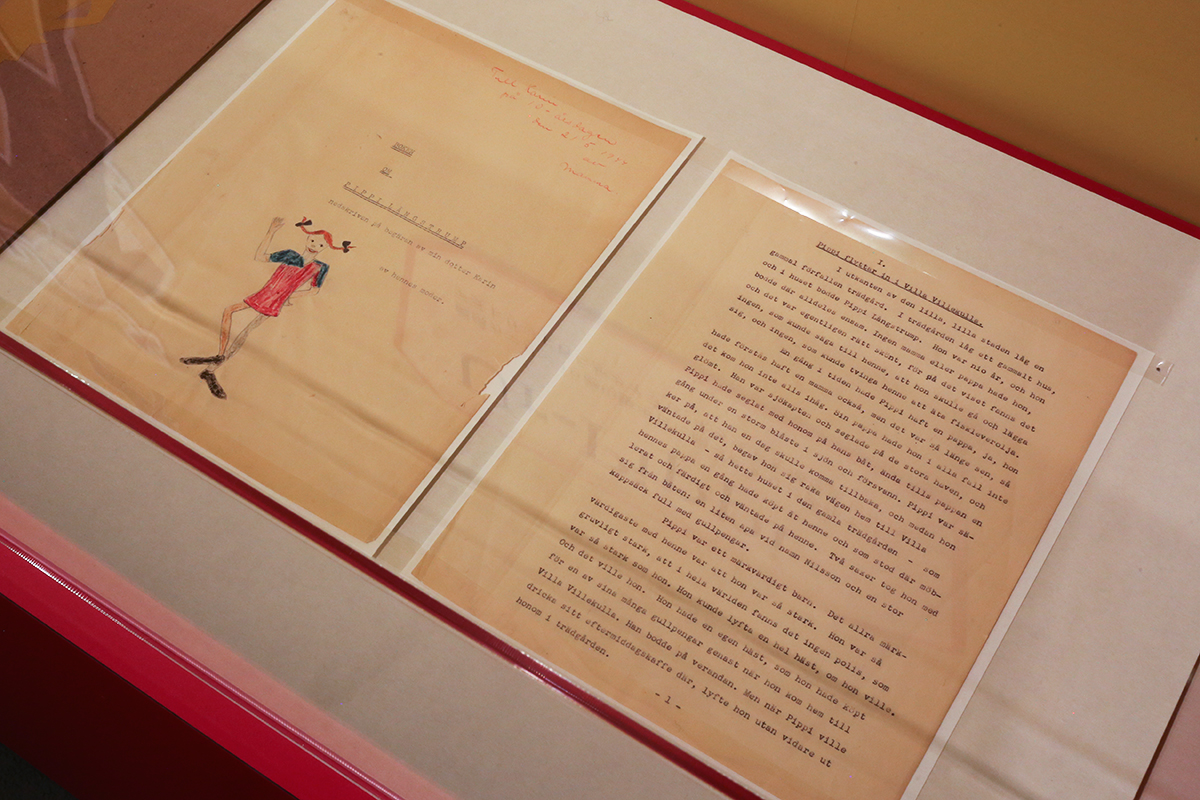 Till Karin
på 10-årsdagen
den 21 5 1944
av
Mamma
OM
PIPPI LÅNGSTRUMP
nedskriven på begäran av min dotter Karin
av hennes moder.
I.
Pippi flyttar in i Villa Villekulla.
I utkanten av den lilla, lilla staden låg en
gammal förfallen trädgård. I trädgården låg ett gammalt hus,
och i huset bodde Pippi Långstrump. Hon var nio år, och hon
bodde där alldeles ensam. Ingen mamma eller pappa hade hon,
och det var egentligen rätt skönt, för på det viset fanns det
ingen, som kunde säga till henne, att hon skulle gå och lägga
sig, och ingen, som kunde tvinga henne att äta fiskleverolja.
En gång i tiden hade Pippi haft en pappa, ja, hon
hade förstås haft en mamma också, men det var så länge sen, så
det kom hon inte alls ihåg. Sin pappa hade hon i alla fall inte
glömt. Han var sjökapten och seglade på de stora haven, och
Pippi hade seglat med honom på hans båt, ända tills pappan en
gång under en storm blåste i sjön och försvann. Pippi var sä-
ker på, att han en dag skulle komma tillbaka, och medan hon
väntade på det, begav hon sig raka vägen hem till Villa
Villekulla - så hette huset i den gamla trädgården - som
hennes pappa en gång hade köpt åt henne och som stod där möb-
lerat och färdigt och väntade på henne. Två saker tog hon med
sig från båten: en liten apa vid namn Nilsson och en stor
kappsäck full med gullpengar.
Pippi var ett märkvärdigt barn. Det allra märk-
värdigaste med henne var att hon var så stark. Hon var så
gruvligt stark, att i hela världen fanns det ingen polis, som
var så stark som hon. Hon kunde lyfta en hel häst, om hon ville.
Och det ville hon. Hon hade en egen häst, som hon hade köpt
för en av sina många gullpengar genast när hon kom hem till
Villa Villekulla. Han bodde på verandan. Men när Pippi ville
dricka sitt eftermiddagskaffe där, lyfte hon utan vidare ut
honom i trädgården.
- 1 -